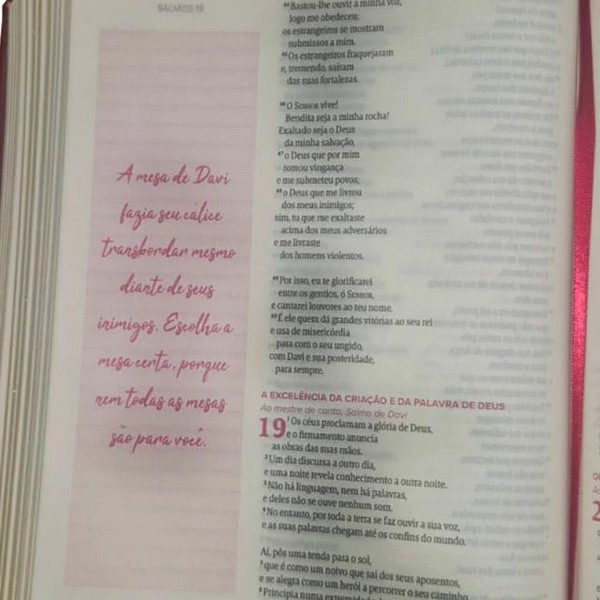 SALMOS 19
A mesa de Davi
fazia seu cálice
transbordar mesmo
diante de seus
inimigos. Escolha a
mesa certa, porque
nem todas as mesas
são para você.
⁴⁴Bastou-lhe ouvir a minha voz,
logo me obedeceu;
os estrangeiros se mostram
submissos a mim.
⁴⁵Os estrangeiros fraquejaram
e, tremendo, saíram
das suas fortalezas.
⁴⁶O Senhor vive!
Bendita seja a minha rocha!
Exaltado seja o Deus
da minha salvação,
⁴⁷o Deus que por mim
tomou vingança
e me submeteu povos;
⁴⁸o Deus que me livrou
dos meus inimigos;
sim, tu que me exaltaste
acima dos meus adversários
e me livraste
dos homens violentos.
⁴⁹Por isso, eu te glorificarei
entre os gentios, ó Senhor,
e cantarei louvores ao teu nome.
⁵⁰É ele quem dá grandes vitórias ao seu rei
e usa de misericórdia
para com o seu ungido,
com Davi e sua posteridade,
para sempre.
A EXCELÊNCIA DA CRIAÇÃO E DA PALAVRA DE DEUS
Ao mestre de canto. Salmo de Davi
19 ¹Os céus proclamam a glória de Deus,
e o firmamento anuncia
as obras das suas mãos.
²Um dia discursa a outro dia,
e uma noite revela conhecimento a outra noite.
³Não há linguagem, nem há palavras,
e deles não se ouve nenhum som.
⁴No entanto, por toda a terra se faz ouvir a sua voz,
e as suas palavras chegam até os confins do mundo.
Aí, pôs uma tenda para o sol,
⁵que é como um noivo que sai dos seus aposentos,
e se alegra como um herói a percorrer o seu caminho.
⁶Principia numa extremidade